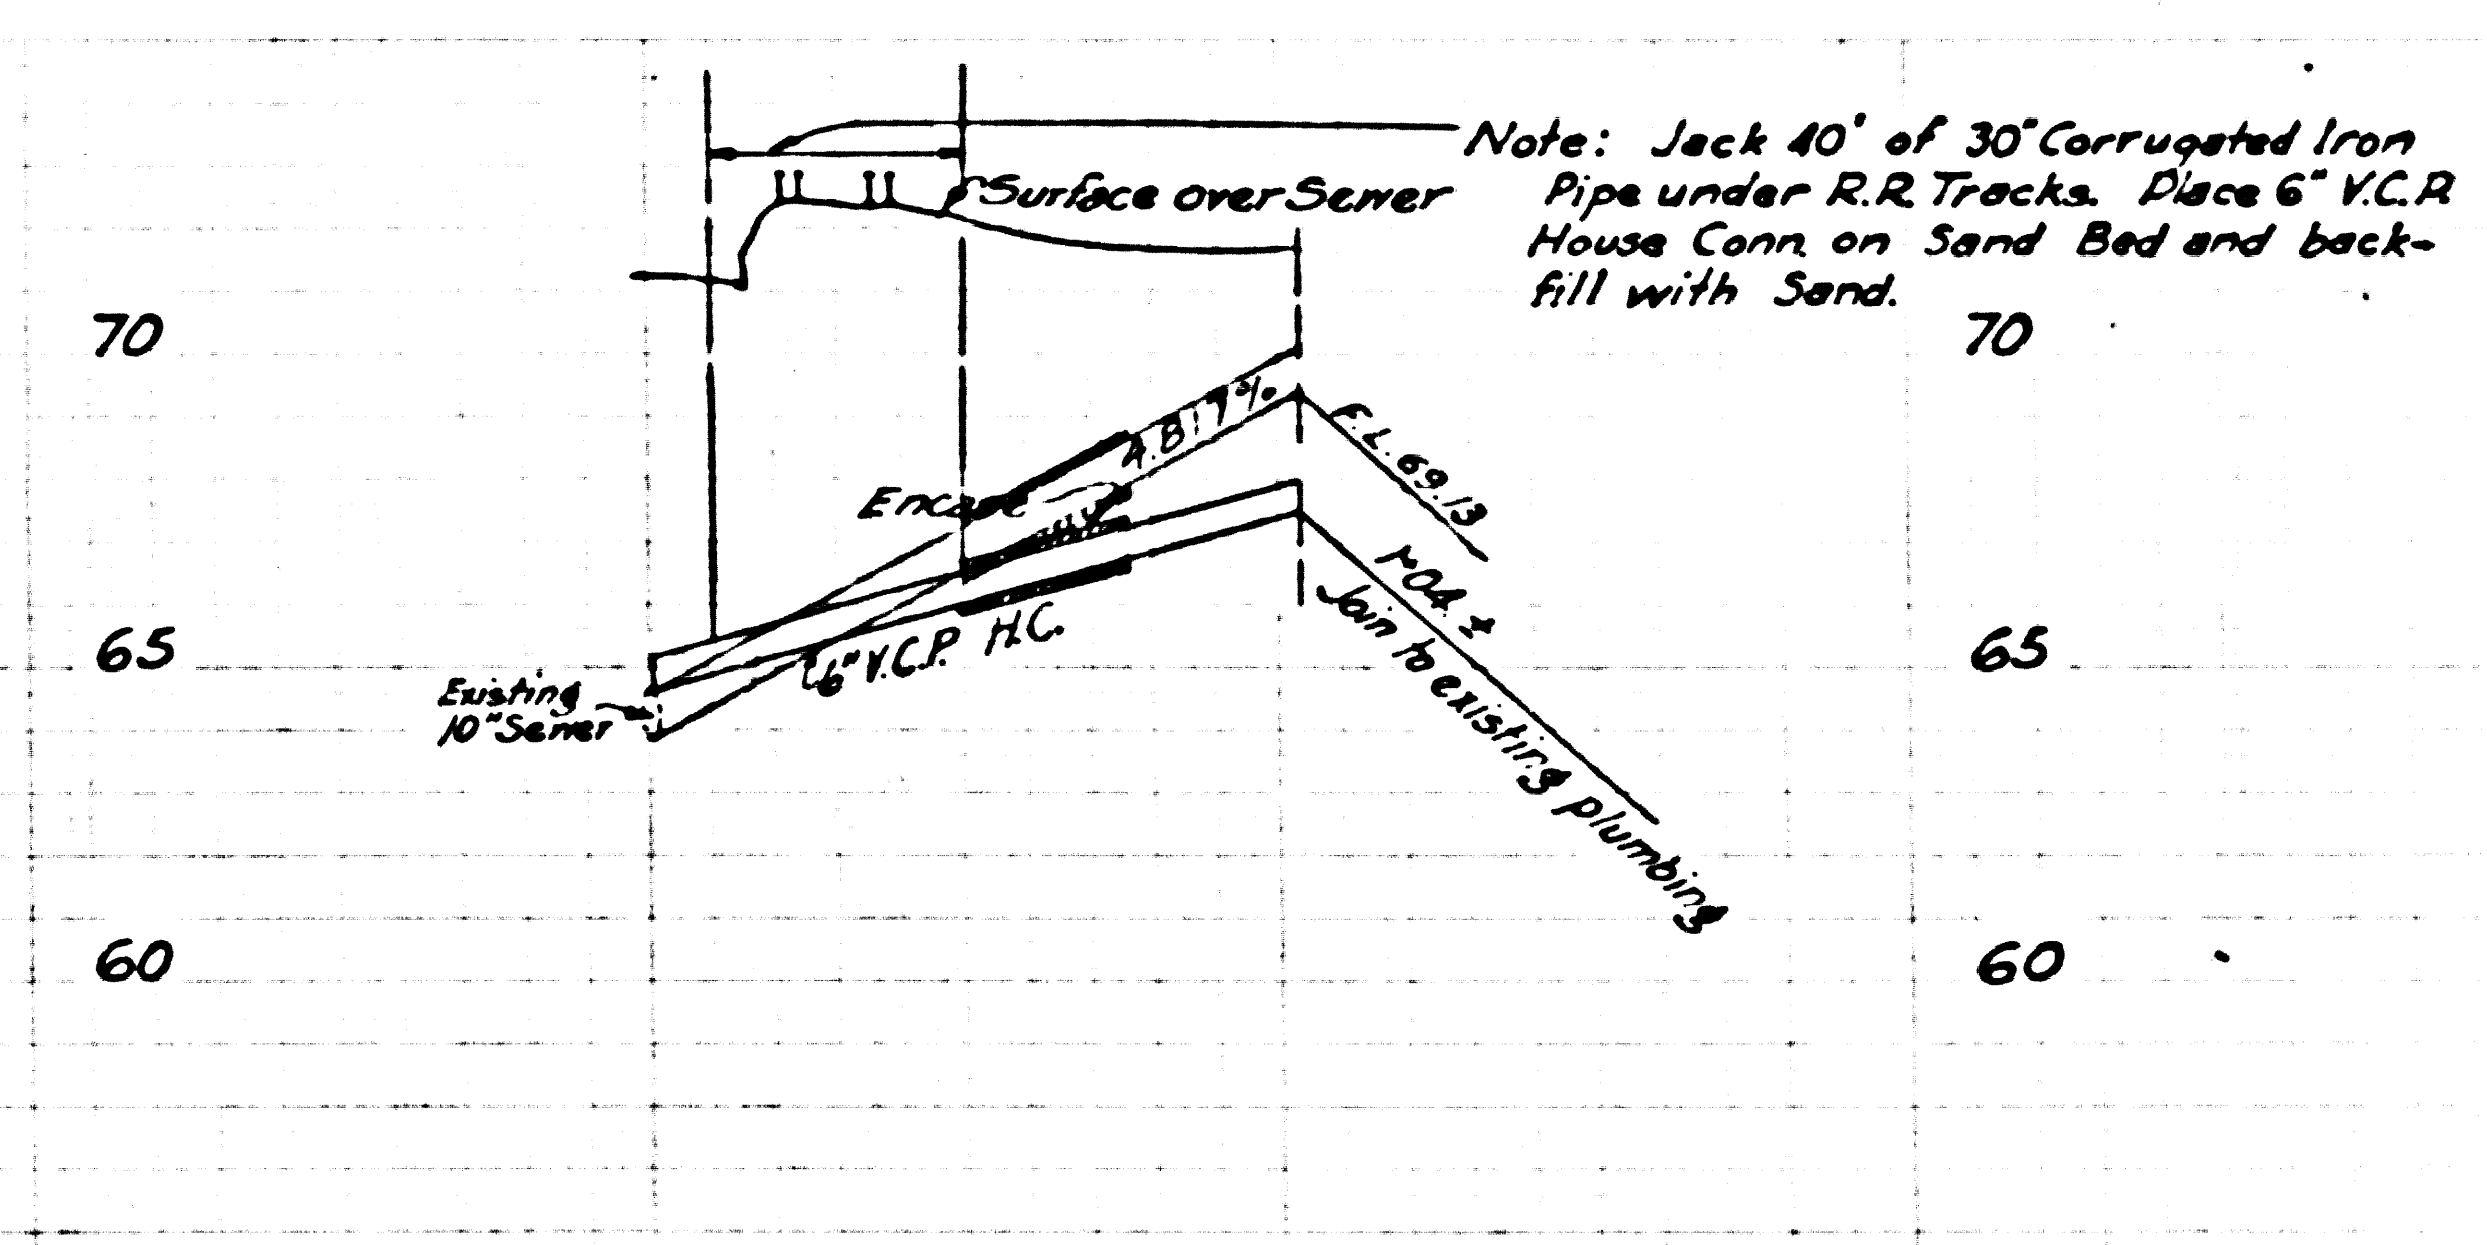 Note: Jack 40' of 30" Corrugated Iron
Pipe under R.R. Tracks. Place 6" V.C.P.
House Conn. on Sand Bed and back-
fill with Sand.
Surface over Sewer
70
70
4.817%
F.L. 69.13
Encase
±
Join to existing plumbing
6" V.C.P. H.C.
65
65
Existing
10" Sewer
60
60